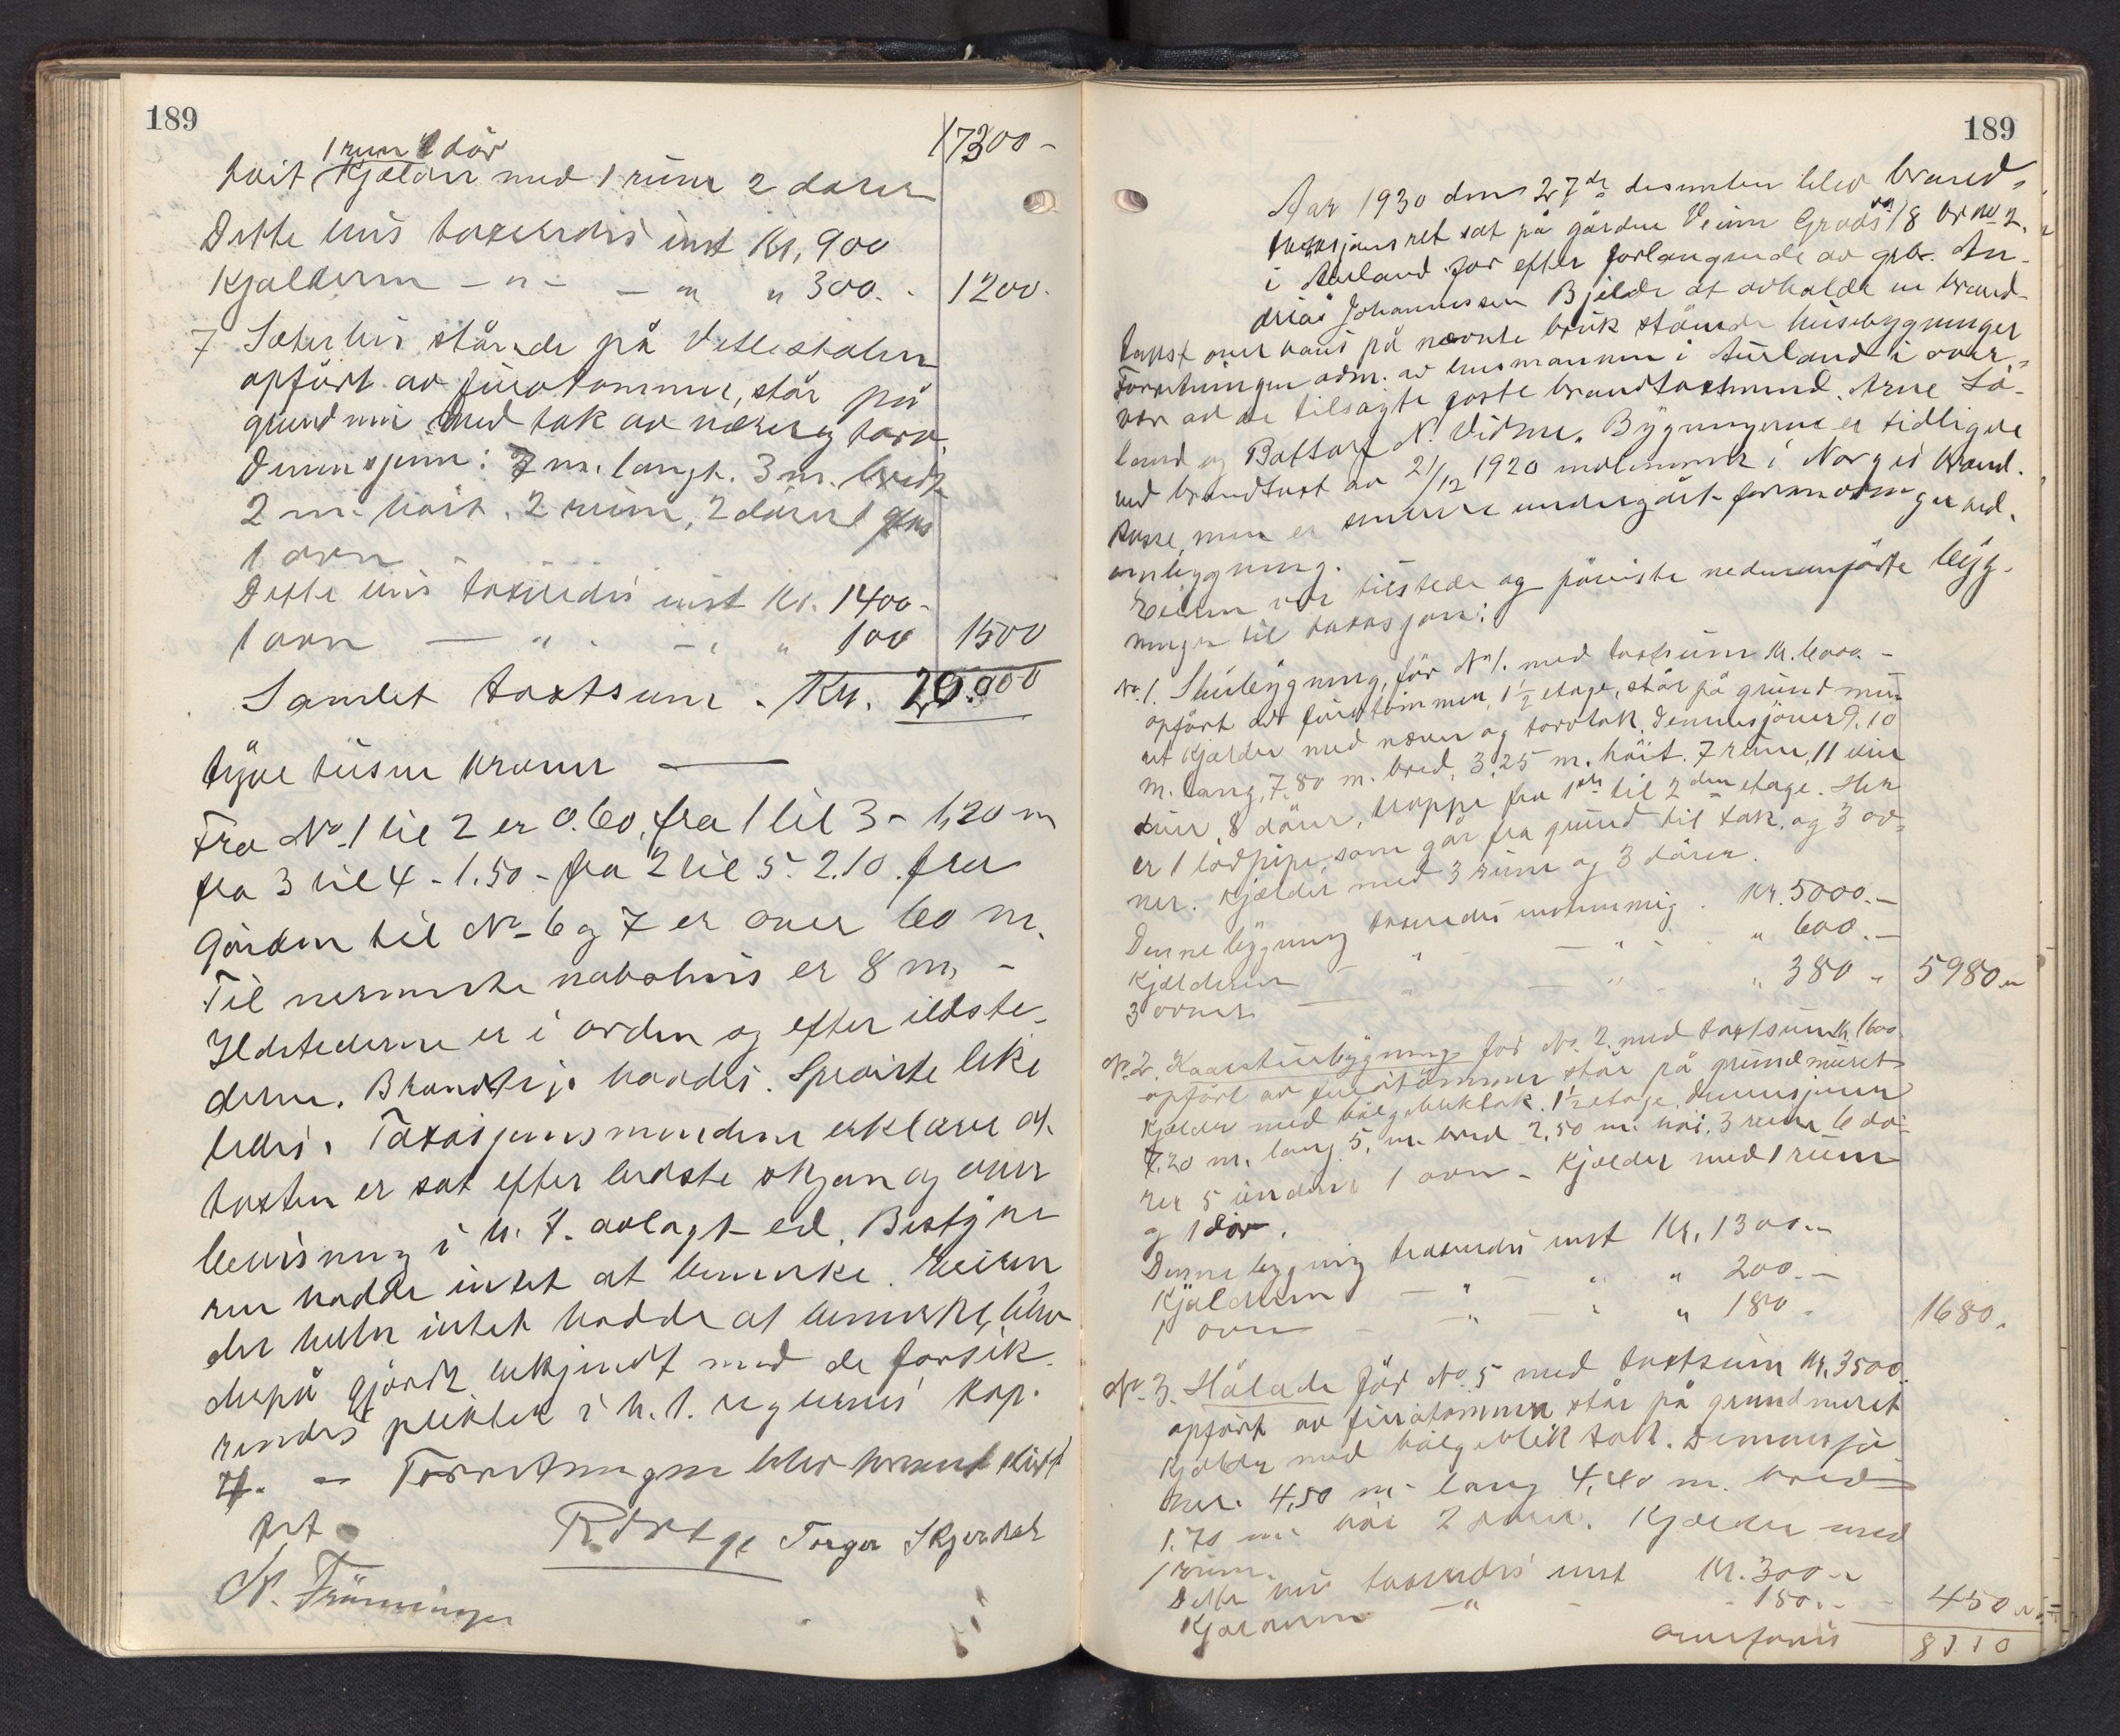 189
17300 -
1 rum 1 dör
høit Kjælder med 1 rum 2 dører
Dette hus taxeredes inst Kr. 900
Kjælderen - " - - " " 300. - 1200.
7 Sæterhus stående på Vetlestølen
opført av furutømmer, står på
grundmur med tak av næver og torv.
Dimensjoner: 7 m. langt. 3 m. bredt
2 m. høit. 2 rum, 2 dører 1 glas
1 ovn
Dette hus taxeredes inst Kr. 1400-
1 ovn — " - " " 100 1500
Samlet taxtsum. Kr. 20.000
tyve tusen kroner —
Fra No 1 til 2 er 0.60, fra 1 til 3 - 1,20 m
fra 3 til 4 - 1.50 - fra 2 til 5. 2.10. fra
Gården til No 6 og 7 er over 60 m.
Til nermeste nabohus er 8 m, -
Ildstederne er i orden og efter ildste-
derne. Brandfrje havdes. Speciste like
ledes. Taxasjonsmendene erklærer at
taxten er sat efter bedste skjøn og over
bevisning i h. t. avlagt ed. Bestyre
ren hadde intet at bemerke. Eieren
der heller intet hadde at bemerke, blev
derpå gjordt bekjendt med de forsik-
rendes plikter i h. t. reglernes kap.
4. - Forretningen blev derned slut
tet
R Ortge Torger Skjerdal
N. Frönninger
189
Aar 1930 den 27de desember blev brand-
taxasjonsret sat på gården Veim Grads no 18 br no 2.
i Aurland for efter forlangende av grb. An-
dreas Johannessen Bjelde at avholde en brand-
takst over hans på nævnte bruk stående husebygninger
Forretningen adm. av lensmannen i Aurland i over-
vær av de tilsagte faste brandtaxtmend. Arne Lå-
land og Battolf N. Vidme. Bygningerne er tidligere
ved brandtaxt av 21/12 1920 indlemmet i Norges brand.
kasse, men er senere undergåt forandringer ved.
ombygning.
Eieren var tilstede og påviste nedenanførte byg-
ninger til taxasjon:
No 1. Stuebygning, før No 1. med taxtsum kr. 6000. -
opført av furutømmer, 1 1/2 etage, står på grundmu-
ret kjælder med næver og torvtak. Dimensjoner 9.10
m. lang, 7,80 m. bred, 3,25 m. høit. 7 rum, 11 vin
duer, 8 dører, trappe fra 1ste til 2den etage. Her
er 1 lødpipe som går fra grund til tak, og 3 ov-
ner. Kjælder med 3 rum og 3 dører.
Denne bygning taxeredes enstemmig. Kr. 5000.-
Kjælderen - " - — " - " 600.-
3 ovner — " — " . " 380 - 5980 -
No. 2. Kaarstuebygning før No. 2. med taxtsum kr. 1600.
opført av furutømmer står på grundmuret
kjælder med bølgebliktak. 1 1/2 etage. Dimensjoner
7.20 m. lang 5. m. bred 2,50 m. høi. 3 rum 6 dø-
rer 5 vinduer 1 ovn - Kjælder med 1 rum
og 1 dør.
Denne bygning taxeredes inst Kr. 1300.-
Kjælderen - " - " " 200.-
1 ovn - " - " " 180 - 1680.
No. 3. Hølade før No 5 med taxtsum kr. 3500.
opført av furutømmer står på grundmuret
kjælder med bølgeblik tak. Dimensjo-
ner. 4,50 m. lang 4,40 m. bred
1.70 m. høi 2 rum. Kjælder med
1 rum.
Dette hus taxeredes inst Kr. 300.-
Kjælderen - " - - 150.- - 450.-
overføres 8110